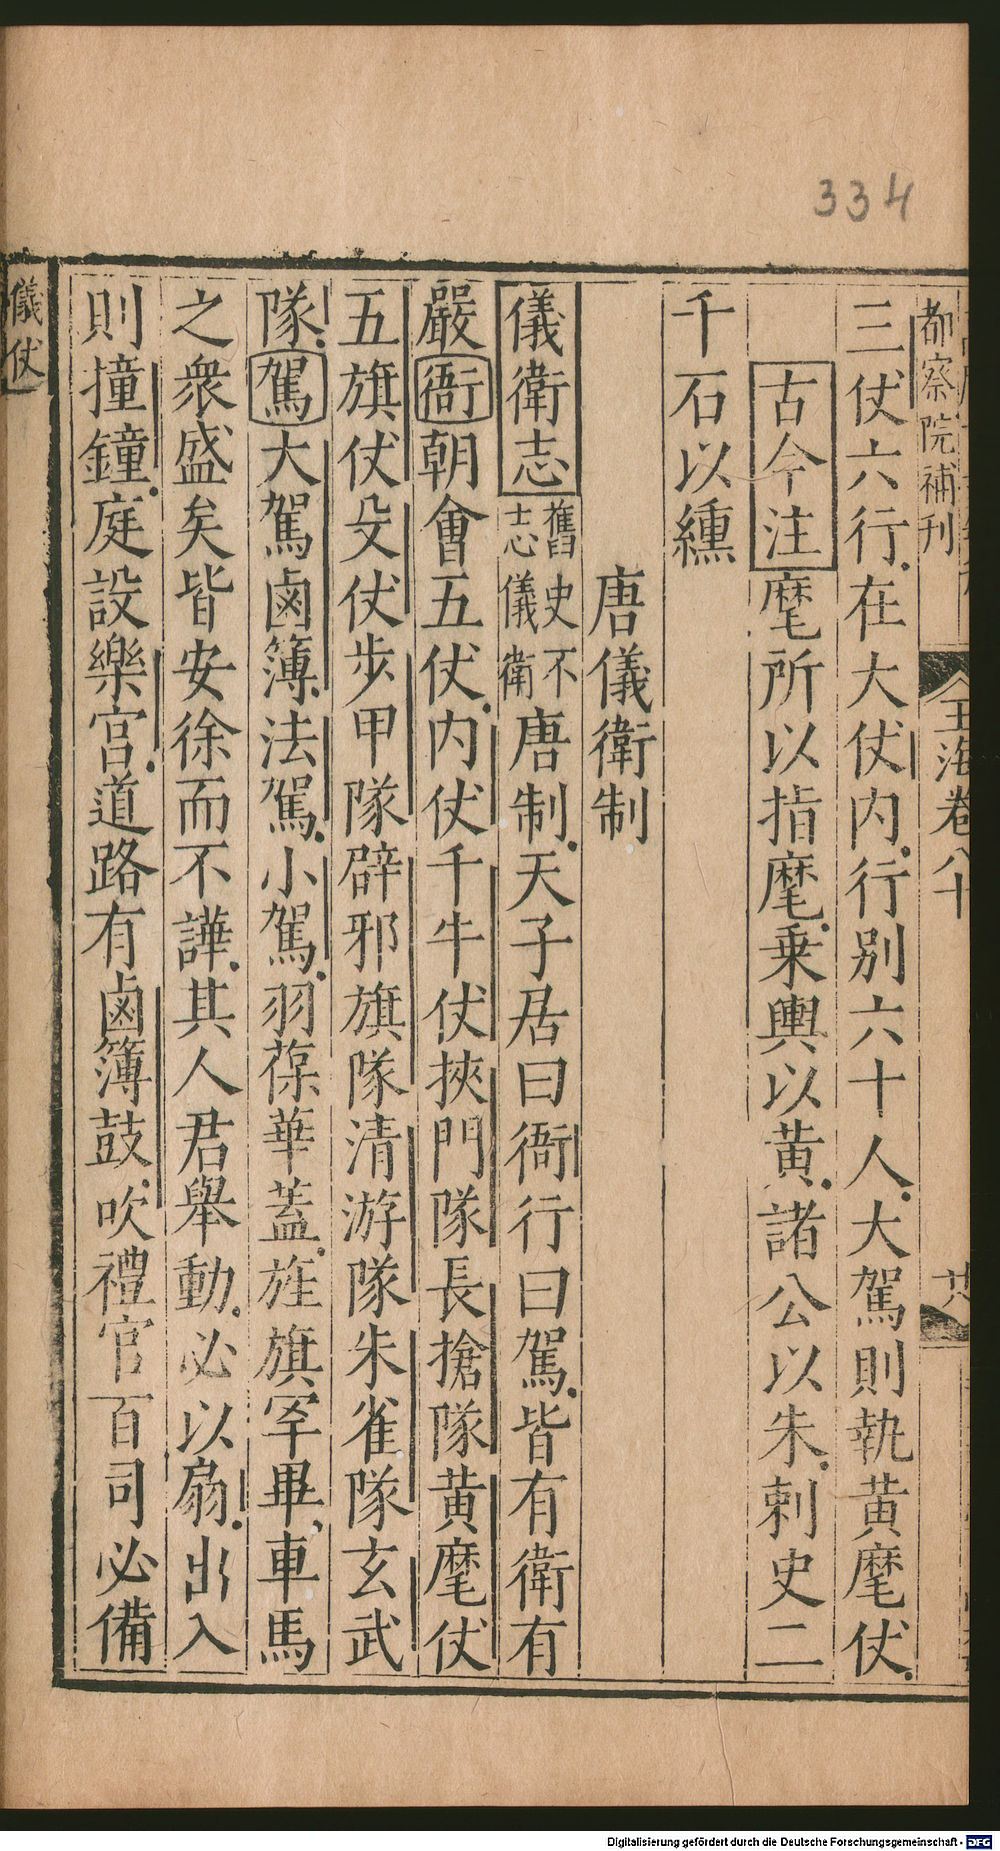 334
都察院補刊
玉海卷八十
三仗六行在大仗内行别六十人大駕則執黄麾仗
古今注麾所以指麾乗輿以黄諸公以朱刺史二
千石以纁
唐儀衛制
儀衛志舊史不志儀衛唐制天子居曰衙行曰駕皆有衛有
嚴衙朝會五仗内仗千牛仗挾門隊長搶隊黄麾仗
五旗仗殳仗步甲隊辟邪旗隊清游隊朱雀隊玄武
隊駕大駕鹵簿法駕小駕羽葆華蓋旌旗罕畢車馬
之衆盛矣皆安徐而不譁其人君舉動必以扇出入
則撞鐘庭設樂宫道路有鹵簿鼓吹禮官百司必備
儀仗
Digitalisierung gefördert durch die Deutsche Forschungsgemeinschaft - DFG